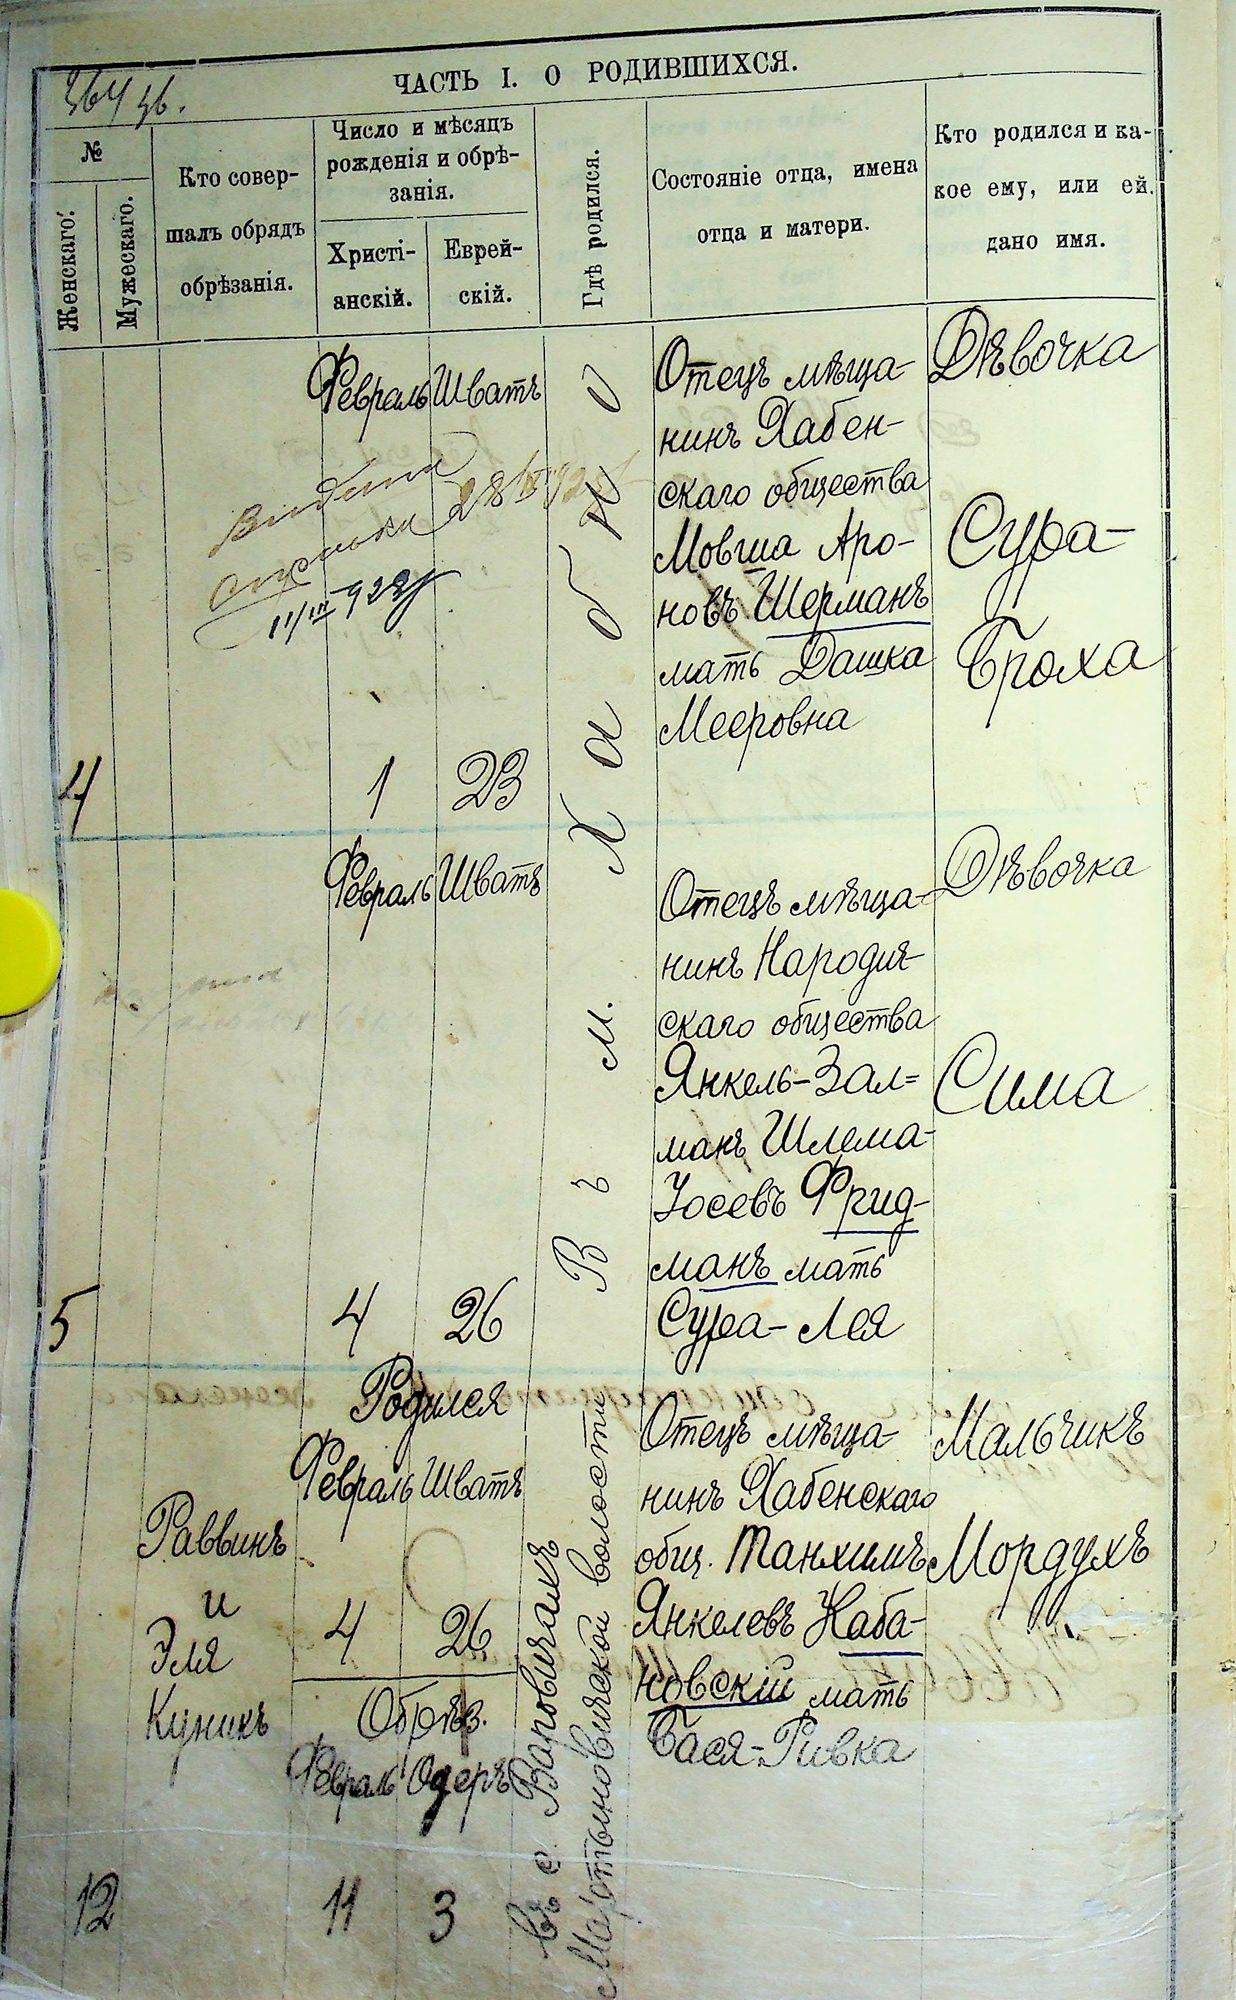 364 зв.
ЧАСТЬ I. О РОДИВШИХСЯ.
№
Женскаго.
Мужескаго.
Кто совер-
шалъ обрядъ
обрѣзанія.
Число и мѣсяцъ
рожденія и обрѣ-
занія.
Христі-
анскій.
Еврей-
скій.
Гдѣ родился.
Состояніе отца, имена
отца и матери.
Кто родился и ка-
кое ему, или ей,
дано имя.
4
Февраль
1
Шватъ
23
11/III 928
Въ м. Хабно
Отецъ мѣща-
нинъ Хабен-
скаго общества
Мовша Аро-
новъ Шерманъ
мать Дашка
Мееровна
Дѣвочка
Сура-
Броха
5
Февраль
4
Шватъ
26
Отецъ мѣща-
нинъ Народич-
скаго общества
Янкель-Зал=
манъ Шлема-
Іосевъ Фрид-
манъ мать
Сура-Лея
Дѣвочка
Сима
12
Раввинъ
и
Эля
Куникъ
Родился
Февраль Шватъ
4 26
Обрѣз.
Февраль Одеръ
11 3
въ с. Воровичахъ
Мартыновичской волости
Отецъ мѣща-
нинъ Хабенскаго
общ. Танхимъ
Янкелевъ Наба-
новскій мать
Бася-Ривка
Мальчикъ
Мордухъ